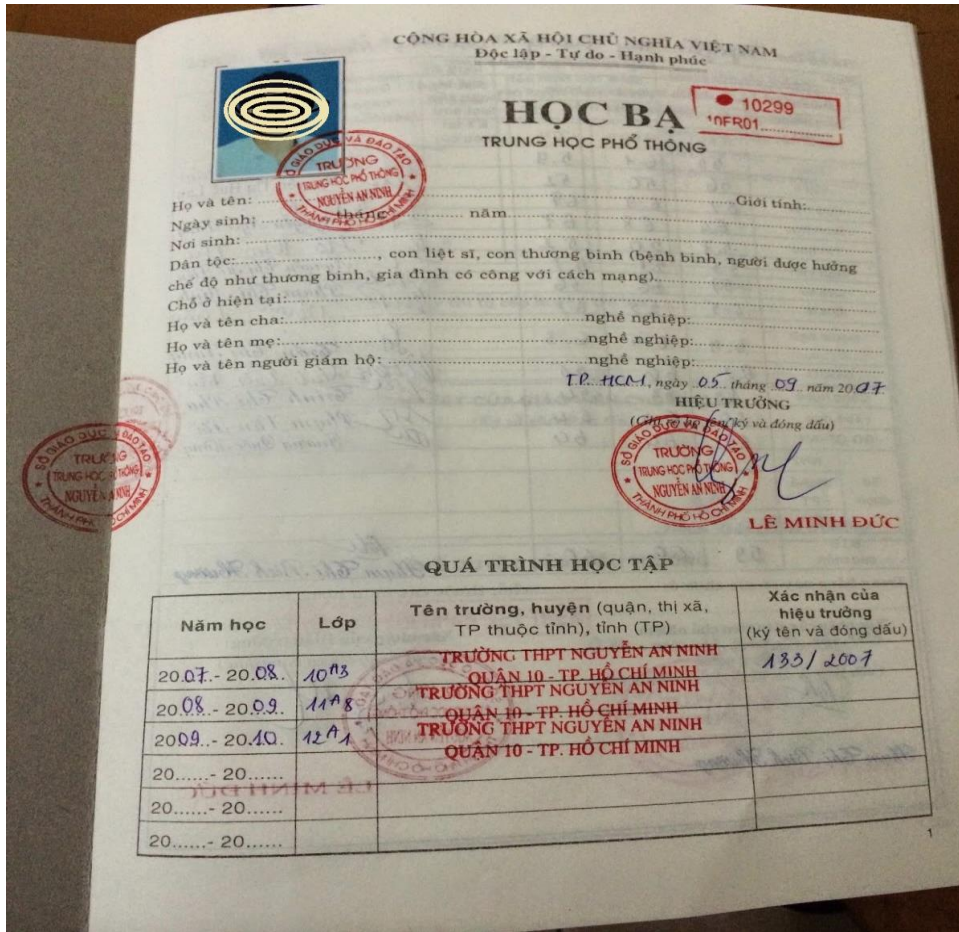 CỘNG HÒA XÃ HỘI CHỦ NGHĨA VIỆT NAM
Độc lập - Tự do - Hạnh phúc
HỌC BẠ
10299
10FR01
TRUNG HỌC PHỔ THÔNG
SỞ GIÁO DỤC VÀ ĐÀO TẠO
TRƯỜNG
TRUNG HỌC PHỔ THÔNG
NGUYỄN AN NINH
THÀNH PHỐ HỒ CHÍ MINH
Họ và tên: Giới tính:
Ngày sinh: tháng năm
Nơi sinh:
Dân tộc:, con liệt sĩ, con thương binh (bệnh binh, người được hưởng
chế độ như thương binh, gia đình có công với cách mạng)
Chỗ ở hiện tại:
Họ và tên cha: nghề nghiệp:
Họ và tên mẹ: nghề nghiệp:
Họ và tên người giám hộ: nghề nghiệp:
TP. HCM, ngày 05 tháng 09 năm 2007
HIỆU TRƯỞNG
(Ghi rõ họ tên, ký và đóng dấu)
SỞ GIÁO DỤC VÀ ĐÀO TẠO
TRƯỜNG
TRUNG HỌC PHỔ THÔNG
NGUYỄN AN NINH
THÀNH PHỐ HỒ CHÍ MINH
SỞ GIÁO DỤC VÀ ĐÀO TẠO
TRƯỜNG
TRUNG HỌC PHỔ THÔNG
NGUYỄN AN NINH
THÀNH PHỐ HỒ CHÍ MINH
LÊ MINH ĐỨC
QUÁ TRÌNH HỌC TẬP
Năm học Lớp Tên trường, huyện (quận, thị xã, TP thuộc tỉnh), tỉnh (TP) Xác nhận của hiệu trưởng (ký tên và đóng dấu)
2007 - 2008 10A3 TRƯỜNG THPT NGUYỄN AN NINH 133/2007
QUẬN 10 - TP. HỒ CHÍ MINH
2008 - 2009 11A8 TRƯỜNG THPT NGUYỄN AN NINH
QUẬN 10 - TP. HỒ CHÍ MINH
2009 - 2010 12A1 TRƯỜNG THPT NGUYỄN AN NINH
QUẬN 10 - TP. HỒ CHÍ MINH
20......- 20......
20......- 20......
20......- 20......
1